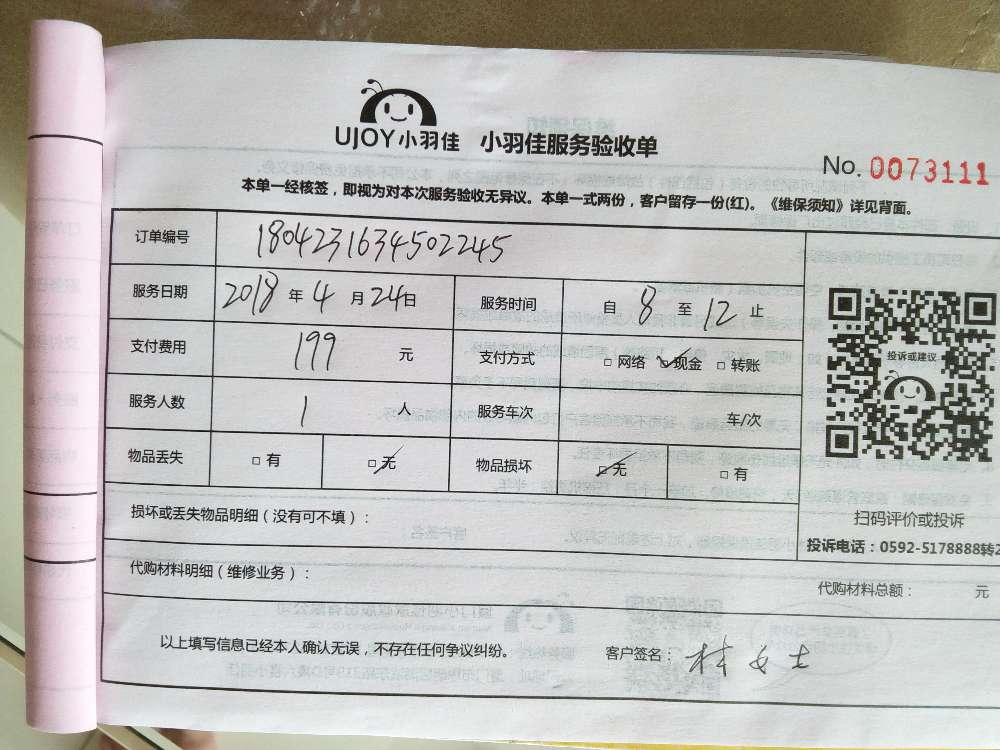 UJOY小羽佳 小羽佳服务验收单
No. 0073111
本单一经核签，即视为对本次服务验收无异议。本单一式两份，客户留存一份(红)。《维保须知》详见背面。
订单编号 1804231634502245
服务日期 2018 年 4 月 24 日 服务时间 自 8 至 12 止
支付费用 199 元 支付方式 □ 网络 ☑ 现金 □ 转账
服务人数 1 人 服务车次 车/次
物品丢失 □ 有 ☑ 无 物品损坏 ☑ 无 □ 有
损坏或丢失物品明细（没有可不填）：
投诉或建议
扫码评价或投诉
投诉电话：0592-5178888转2
代购材料明细（维修业务）：
代购材料总额： 元
以上填写信息已经本人确认无误，不存在任何争议纠纷。 客户签名： 林女士